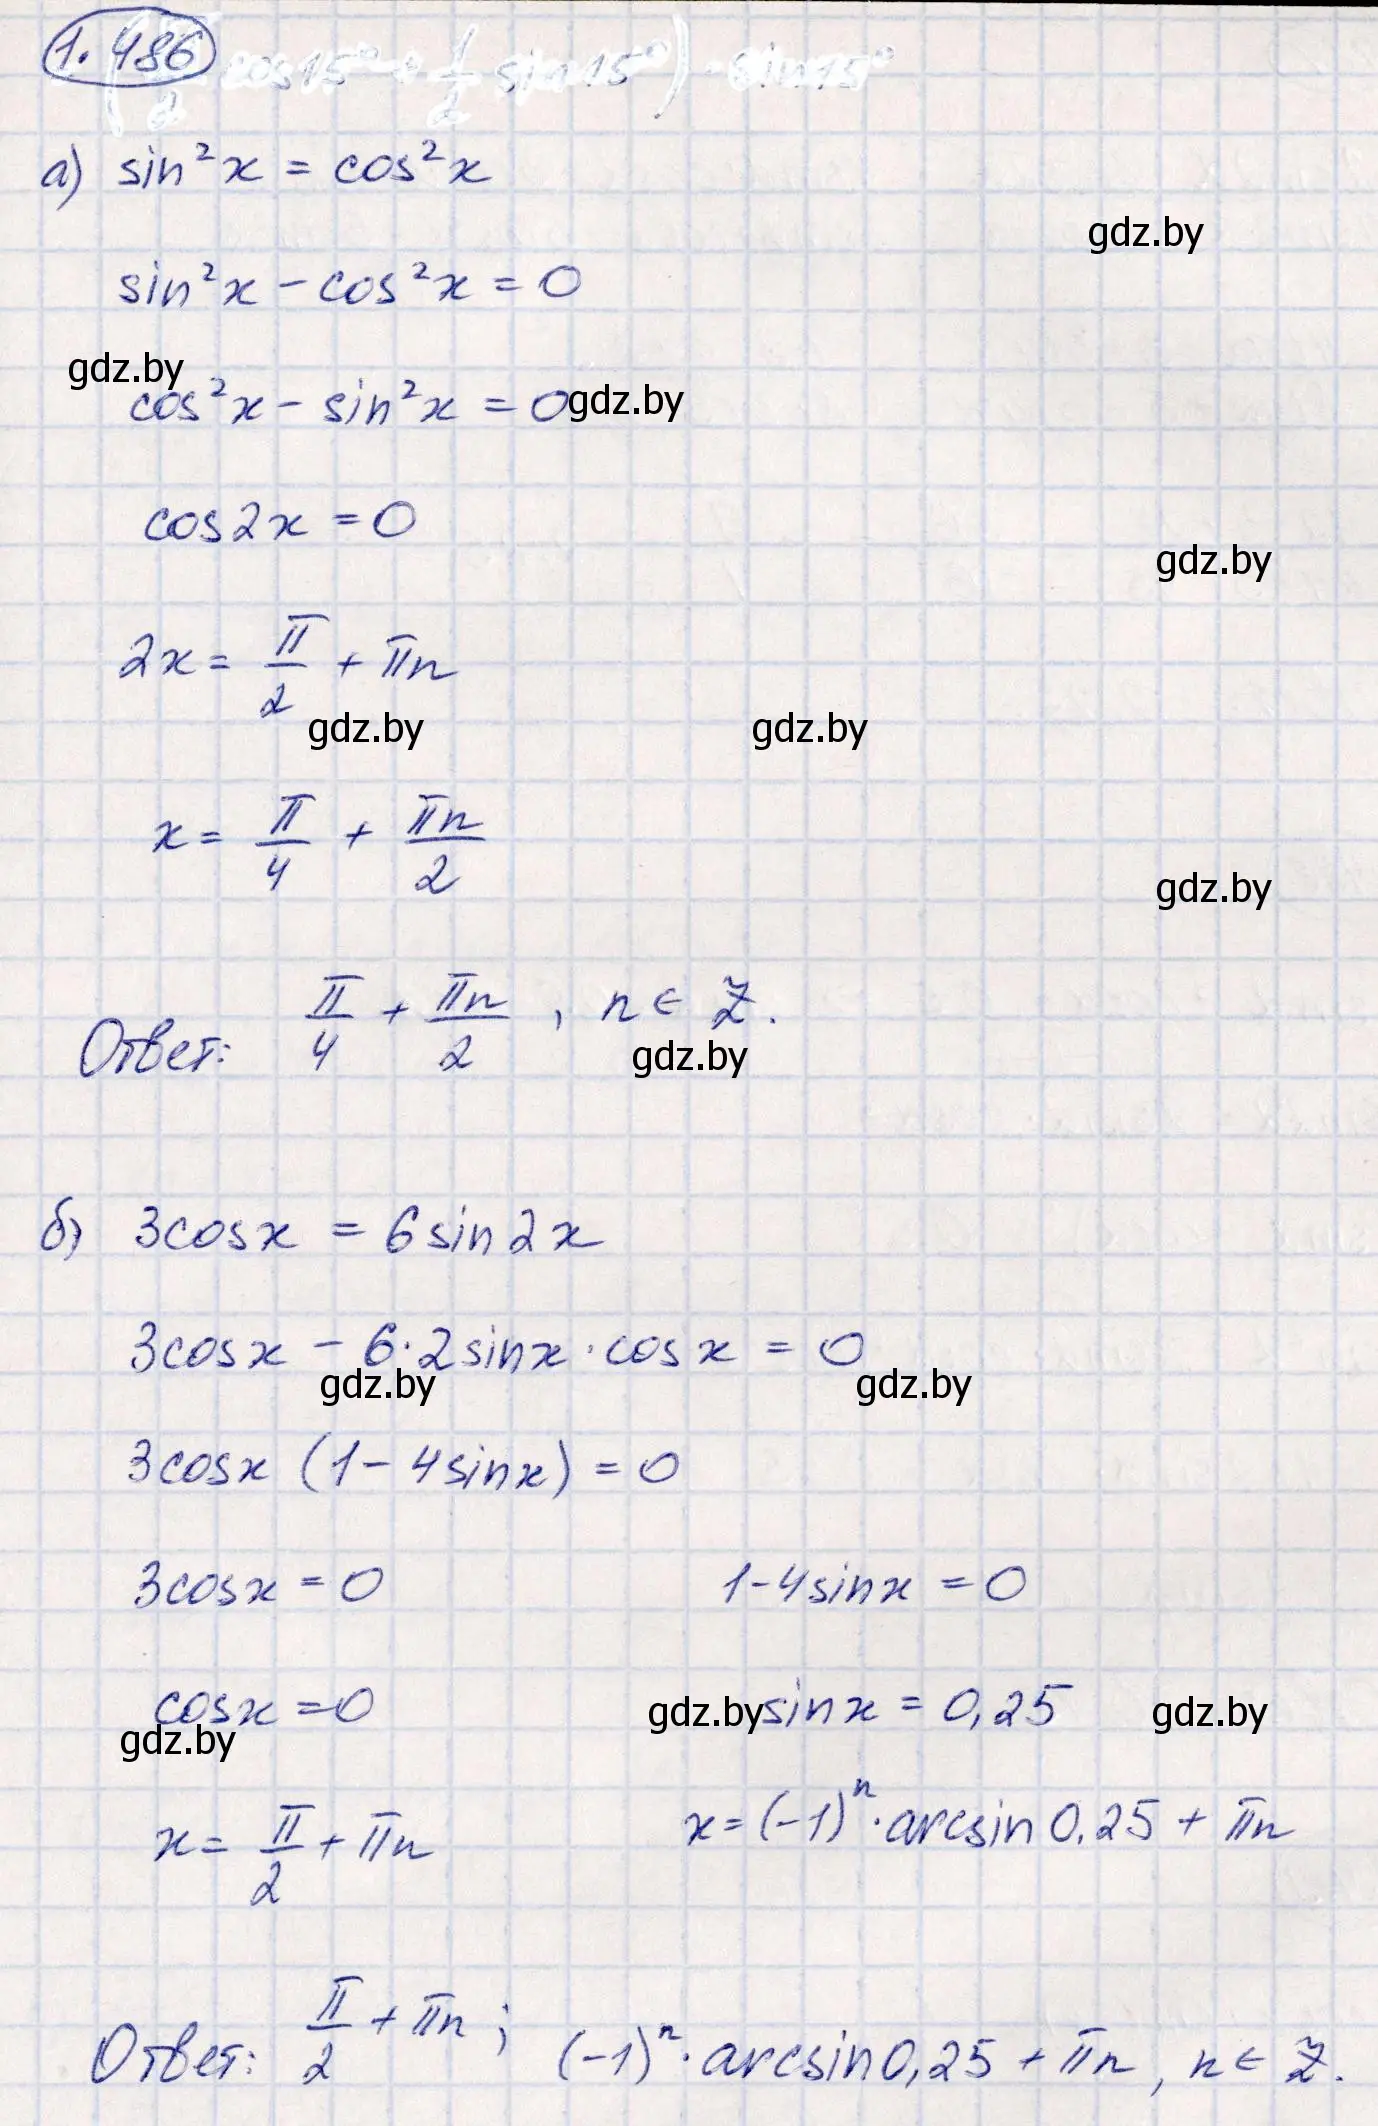 1.486
а) sin²x = cos²x
gdz.by
sin²x − cos²x = 0
gdz.by
cos²x − sin²x = 0 gdz.by
cos2x = 0
gdz.by
2x = π/2 + πn
gdz.by gdz.by
x = π/4 + πn/2
gdz.by
Ответ: π/4 + πn/2 , n ∈ Z.
gdz.by
б) 3cosx = 6sin2x
3cosx − 6·2sinx·cosx = 0
gdz.by gdz.by
3cosx (1 − 4sinx) = 0
3cosx = 0 1 − 4sinx = 0
cosx = 0 gdz.by sinx = 0,25 gdz.by
gdz.by
x = π/2 + πn x = (−1)ⁿ·arcsin0,25 + πn
Ответ: π/2 + πn ; (−1)ⁿ·arcsin0,25 + πn, n ∈ Z.